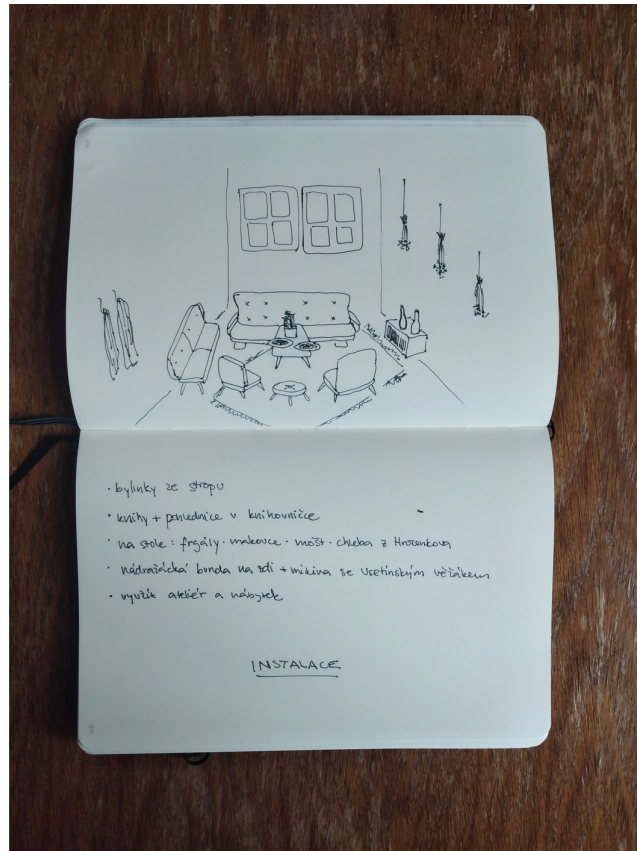 · bylinky ze stropu
· knihy + pohlednice v knihovničce
· na stole : frgály · makovce · mošt · chleba z Hrozenkova
· nádražácká bunda na zdi + mikina se vsetínským věžákem
· využít ateliér a nábytek
INSTALACE